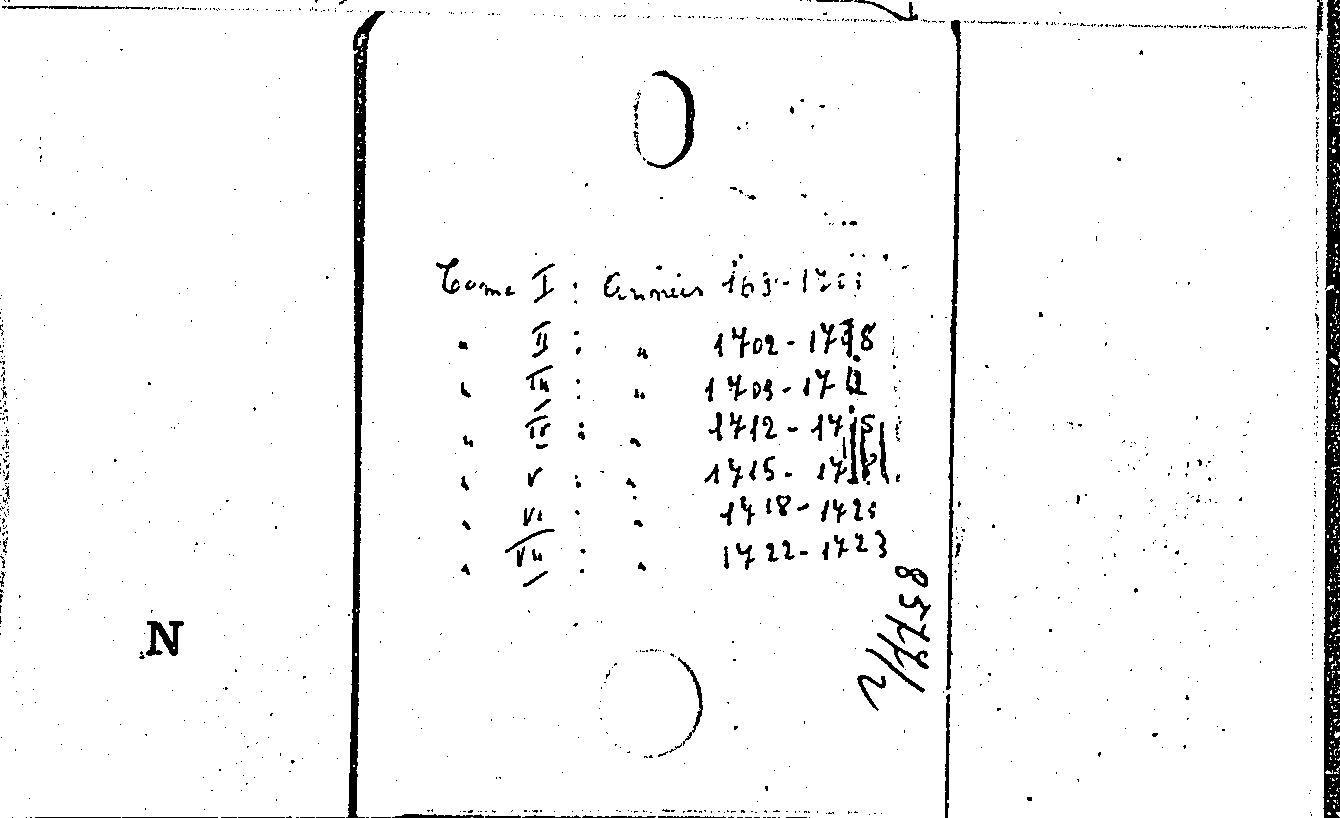 Tome I : Années
" II : " 1702-1708
" III : " 1709-1712
" IV : " 1712-1715
" V : " 1715-1718
" VI : " 1718-172
" VII : " 1722-1723
8577/2
N